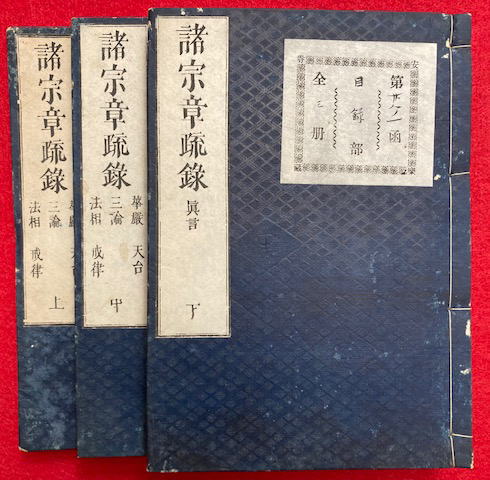 諸宗章疏錄
眞言
下
第廿八ノ一函
目錄部
全三册
諸宗章疏錄
華嚴 天台
三論
法相 戒律
中
諸宗章疏錄
華嚴 天台
三論
法相 戒律
上